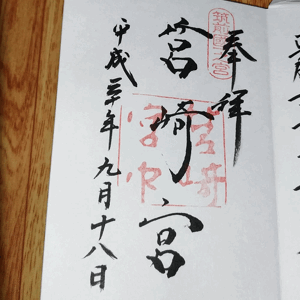 奉拝
筑前國一之宮
筥崎宮
筥崎宮印
平成三十年九月十八日